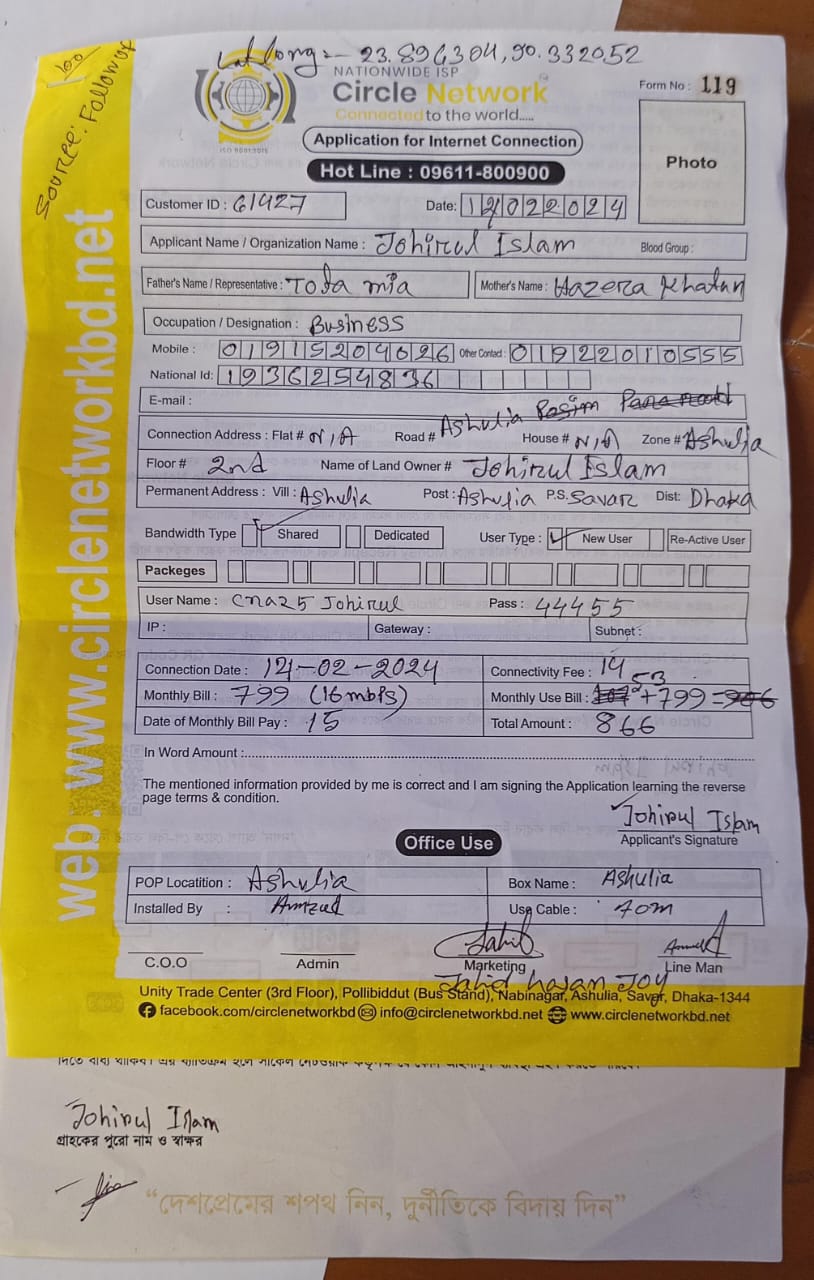 100
Source: Follow up
Lat long:- 23.896304, 90.332052
NATIONWIDE ISP
Circle Network
Connected to the world.....
ISO 9001:2015
Form No : 119
Application for Internet Connection
Hot Line : 09611-800900
Photo
web: www.circlenetworkbd.net
Customer ID : 61427 Date: 12022024
Applicant Name / Organization Name : Johirul Islam Blood Group :
Father's Name / Representative : Tota mia Mother's Name : Hazera Khatun
Occupation / Designation : Business
Mobile : 01915204626 Other Contact : 01922010555
National Id: 1936254836
E-mail :
Connection Address : Flat # N/A Road # Ashulia House # N/A Zone # Ashulia
Floor # 2nd Name of Land Owner # Johirul Islam
Permanent Address : Vill : Ashulia Post : Ashulia P.S. Savar Dist: Dhaka
Bandwidth Type Shared Dedicated User Type : New User Re-Active User
Packeges
User Name : cna25 Johirul Pass : 44455
IP : Gateway : Subnet :
Connection Date : 12-02-2024 Connectivity Fee : 14
Monthly Bill : 799 (16mbps) Monthly Use Bill : 53 +799 =906
Date of Monthly Bill Pay : 15 Total Amount : 866
In Word Amount :
The mentioned information provided by me is correct and I am signing the Application learning the reverse
page terms & condition.
Johirul Islam
Applicant's Signature
Office Use
POP Locatition : Ashulia Box Name : Ashulia
Installed By : Amzad Use Cable : 70m
Jahid
C.O.O Admin Marketing Line Man
Jahid hasan JOY
Unity Trade Center (3rd Floor), Pollibiddut (Bus Stand), Nabinagar, Ashulia, Saver, Dhaka-1344
facebook.com/circlenetworkbd info@circlenetworkbd.net www.circlenetworkbd.net
Johirul Islam
গ্রাহকের পুরো নাম ও স্বাক্ষর
“দেশপ্রেমের শপথ নিন, দুর্নীতিকে বিদায় দিন”